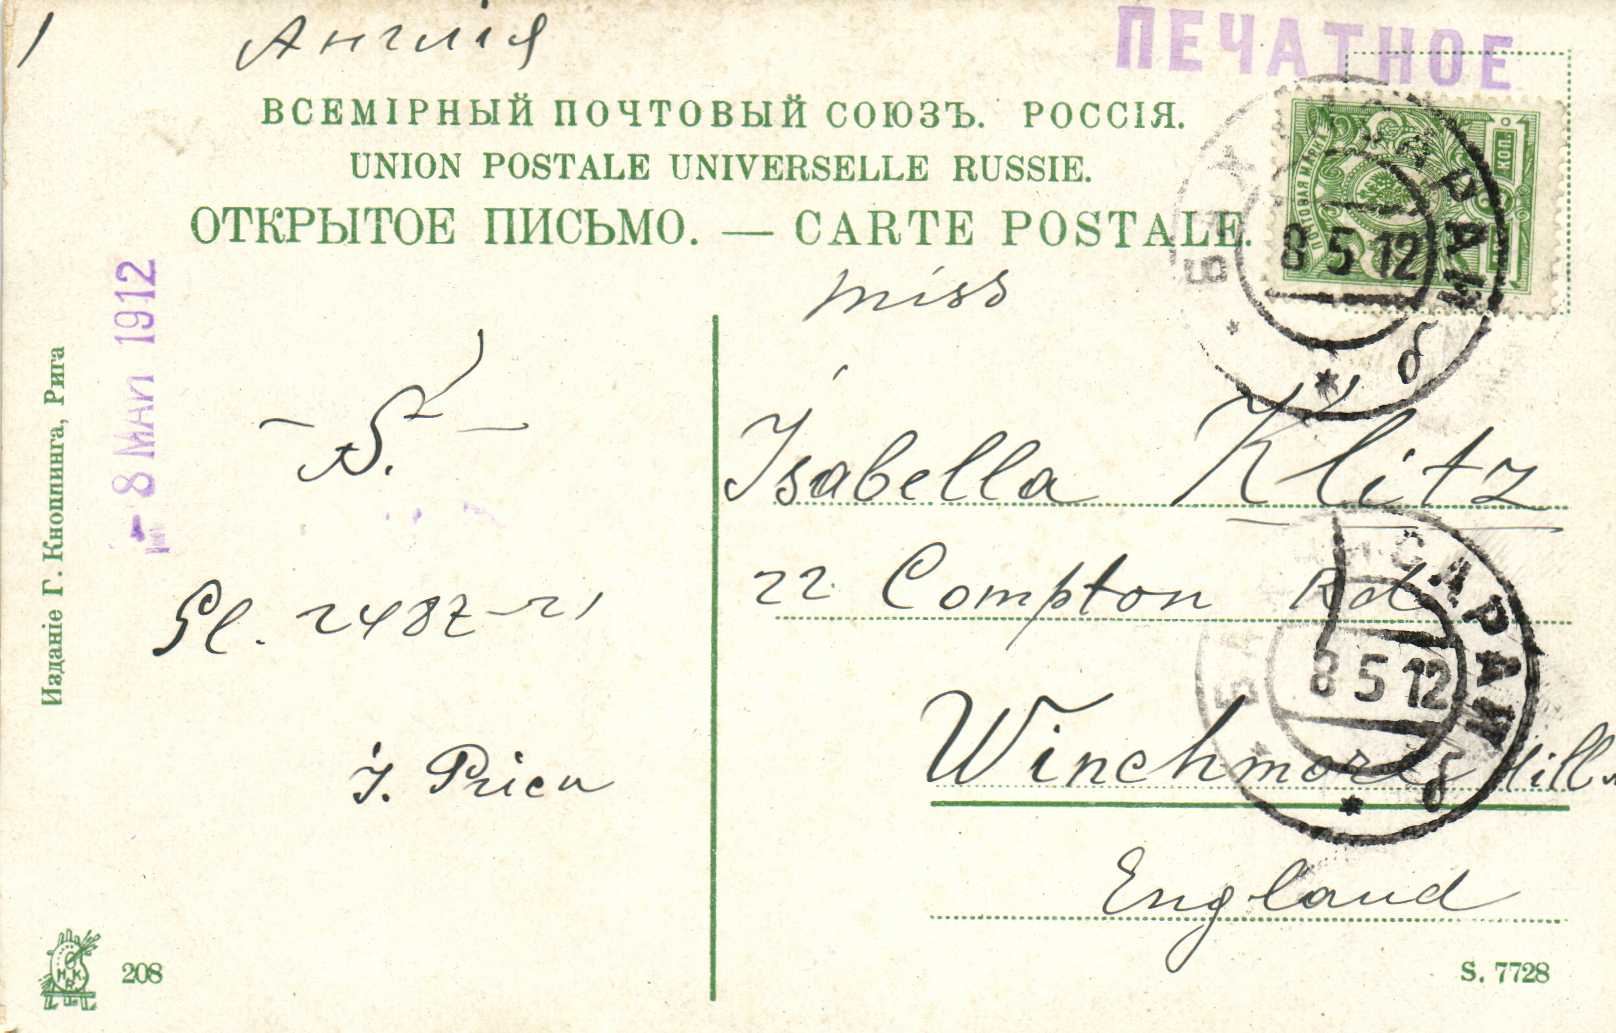 Англія
ПЕЧАТНОЕ
ВСЕМІРНЫЙ ПОЧТОВЫЙ СОЮЗЪ. РОССІЯ.
UNION POSTALE UNIVERSELLE RUSSIE.
ОТКРЫТОЕ ПИСЬМО. — CARTE POSTALE.
ПОЧТОВАЯ МАРКА
1 КОП.
8 5 12
б
miss
Isabella Klitz
22 Compton Rd
Winchmore Hill
England
БАХЧИСАРАЙ
8 5 12
б
8 МАЙ 1912
Изданіе Г. Кношпинга, Рига
Н.К.
Р.
208
S. 7728